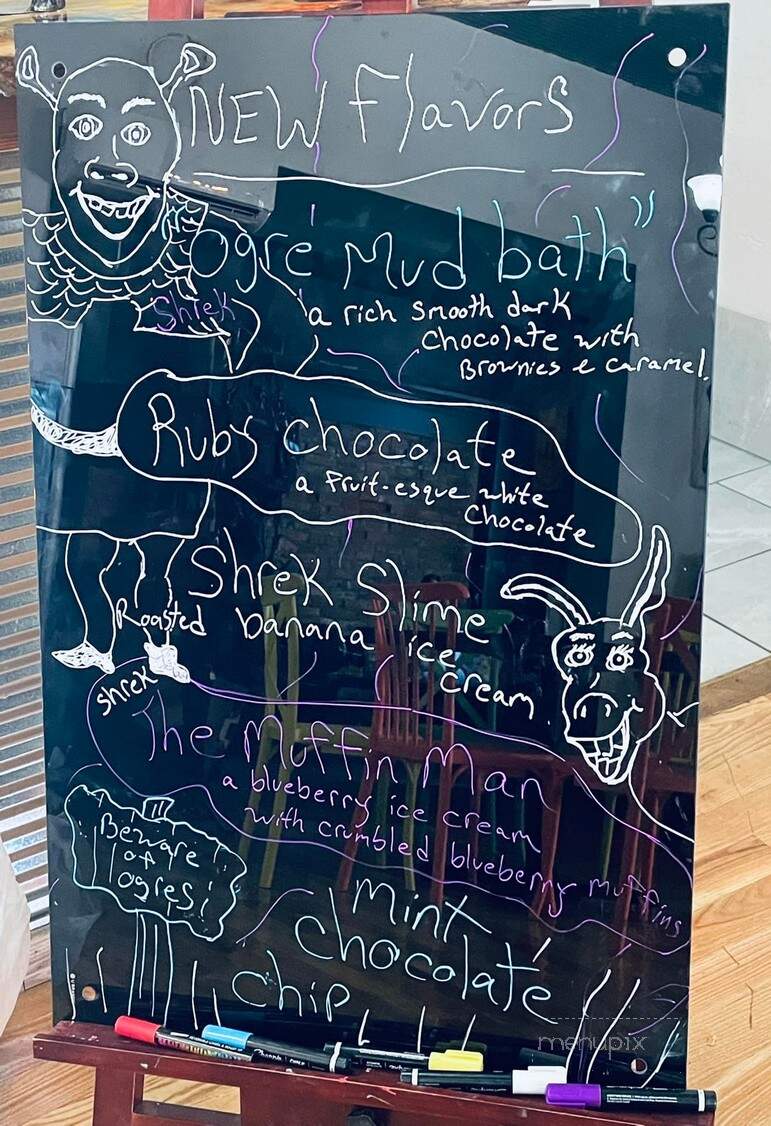 NEW Flavors
"Ogre Mud bath"
Shrek
a rich smooth dark
chocolate with
Brownies & caramel.
Ruby chocolate
a fruit-esque white
chocolate
Shrek Slime
Roasted banana ice
cream
shrek
The Muffin Man
a blueberry ice cream
with crumbled blueberry muffins
Beware
of
ogres!
Mint
chocolate
chip
menupix